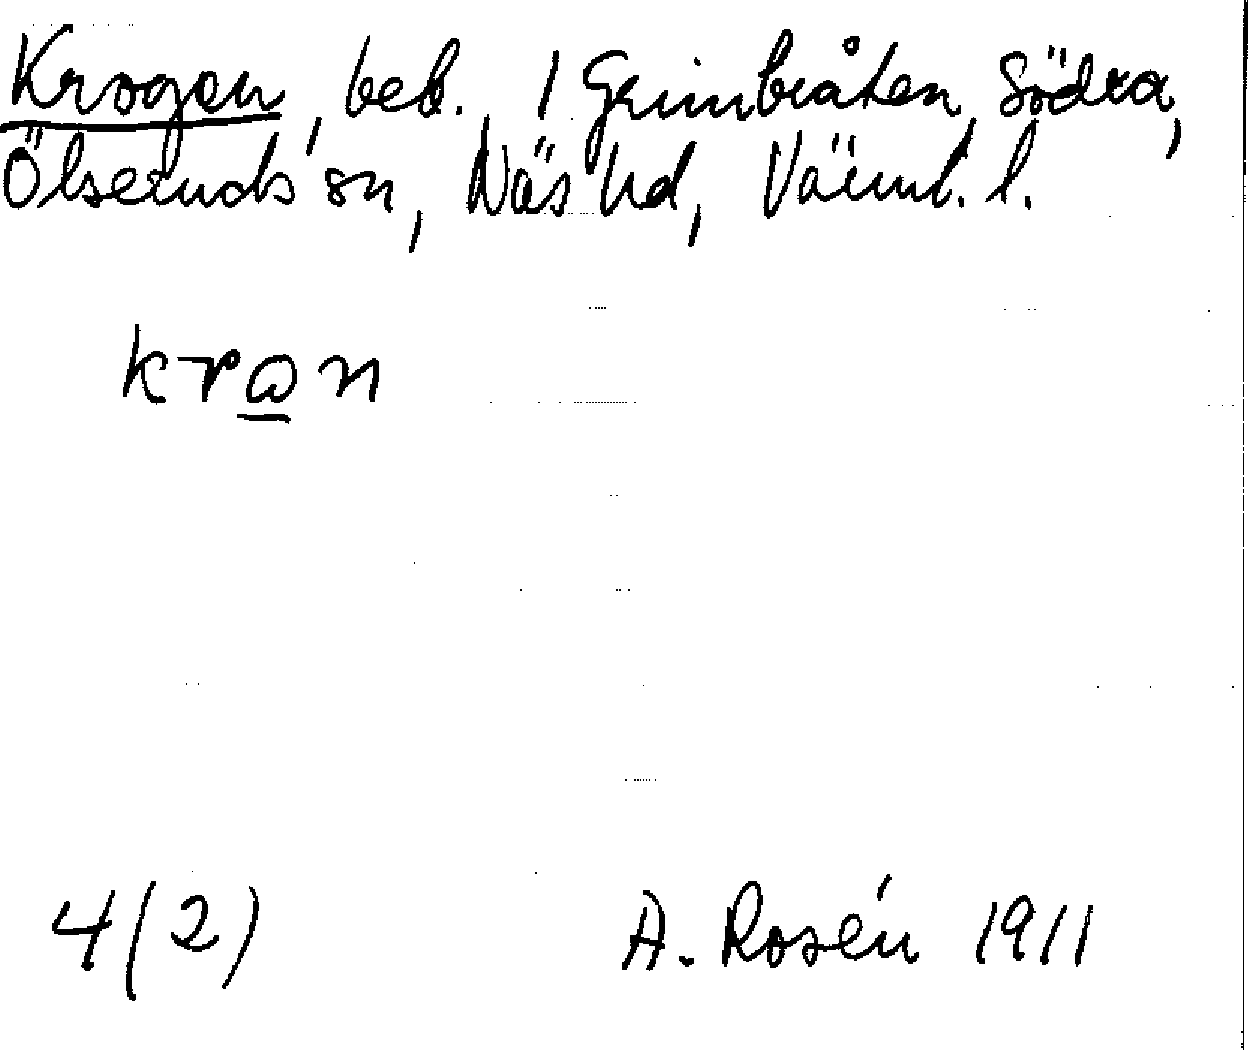 Krogen, beb. 1 Grimbråten, Södra,
Ölseruds sn, Näs hd, Värml. l.
kran
4(2) A. Rosén 1911